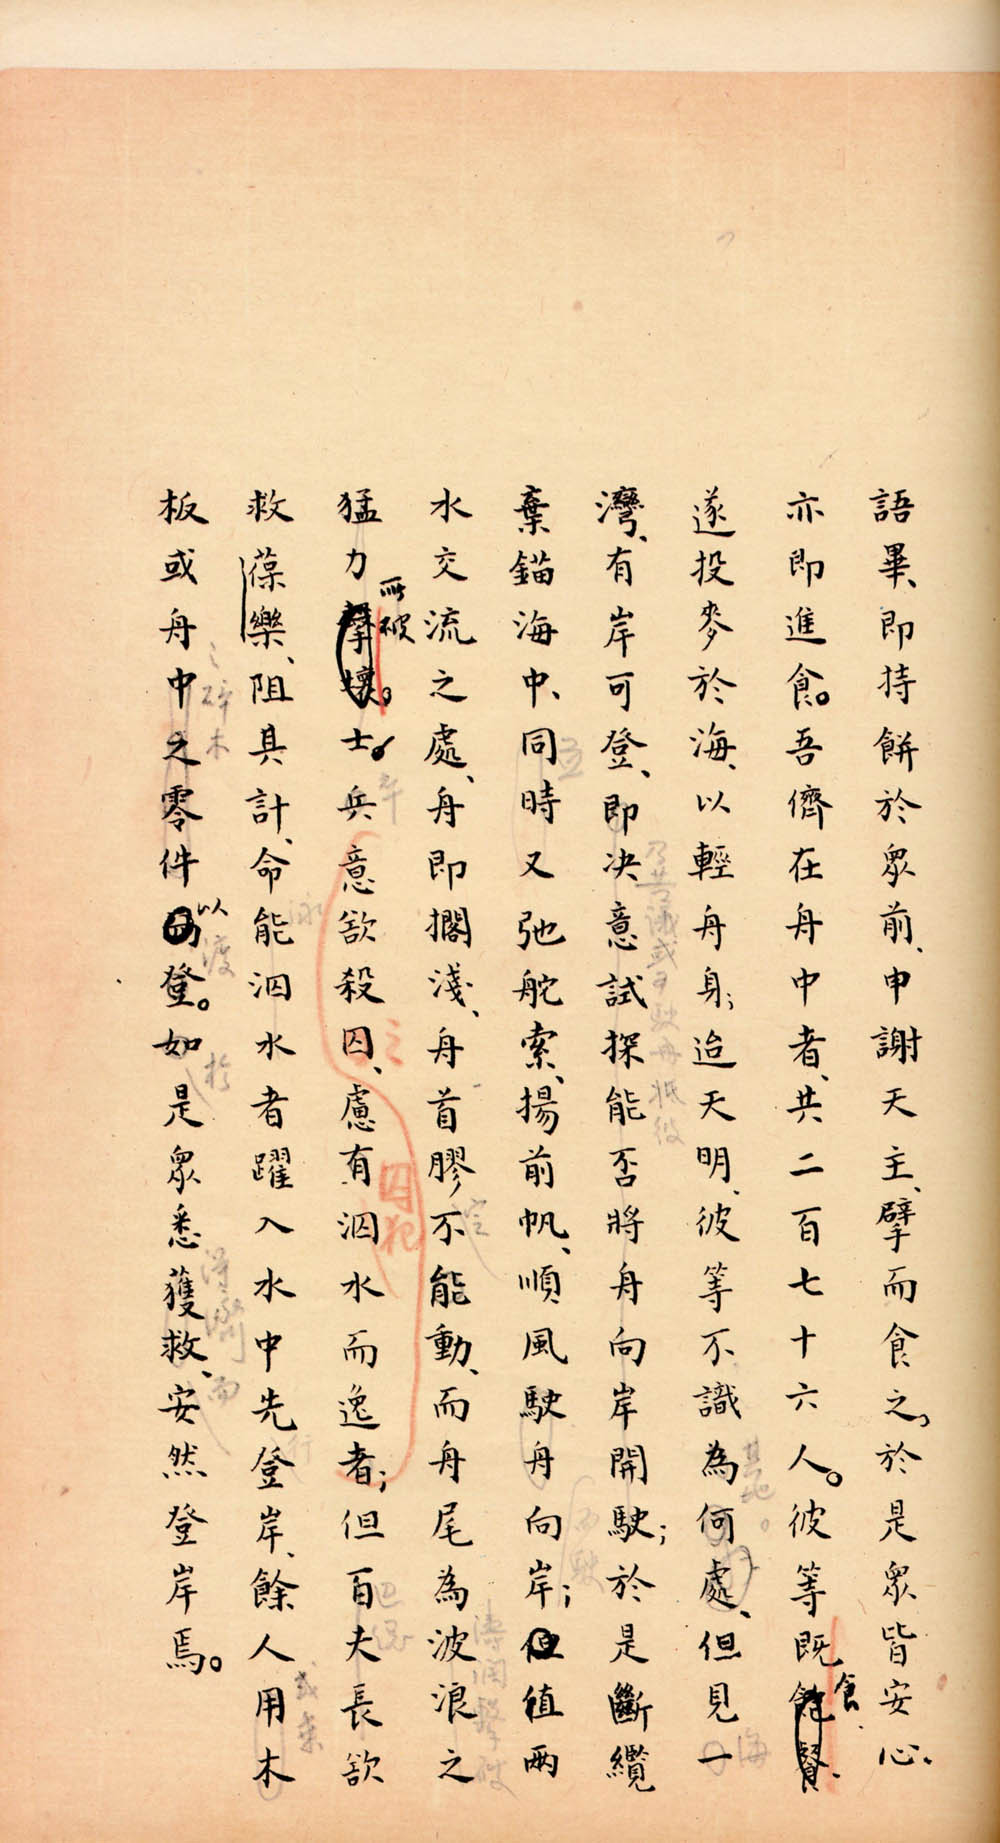 語畢、即持餅於眾前、申謝天主、擘而食之、於是眾皆安心、
亦即進食。吾儕在舟中者、共二百七十六人。彼等既飽餐、食
遂投麥於海、以輕舟身；迨天明、彼等不識為何處、但見一
灣、有岸可登、即決意試探能否將舟向岸開駛；於是斷纜
棄錨海中、同時又弛舵索、揚前帆、順風駛舟向岸；但值兩
水交流之處、舟即擱淺、舟首膠不能動、而舟尾為波浪之
猛力擊壞。所破士兵意欲殺囚、慮有泅水而逸者；但百夫長欲
救葆樂、阻其計、命能泅水者躍入水中先登岸、餘人用木
板或舟中之零件以登。如是眾悉獲救、安然登岸焉。
之
囚犯
海
定
濤洶擊破
卒
泳
行
或乘
之碎木
渡
於
而